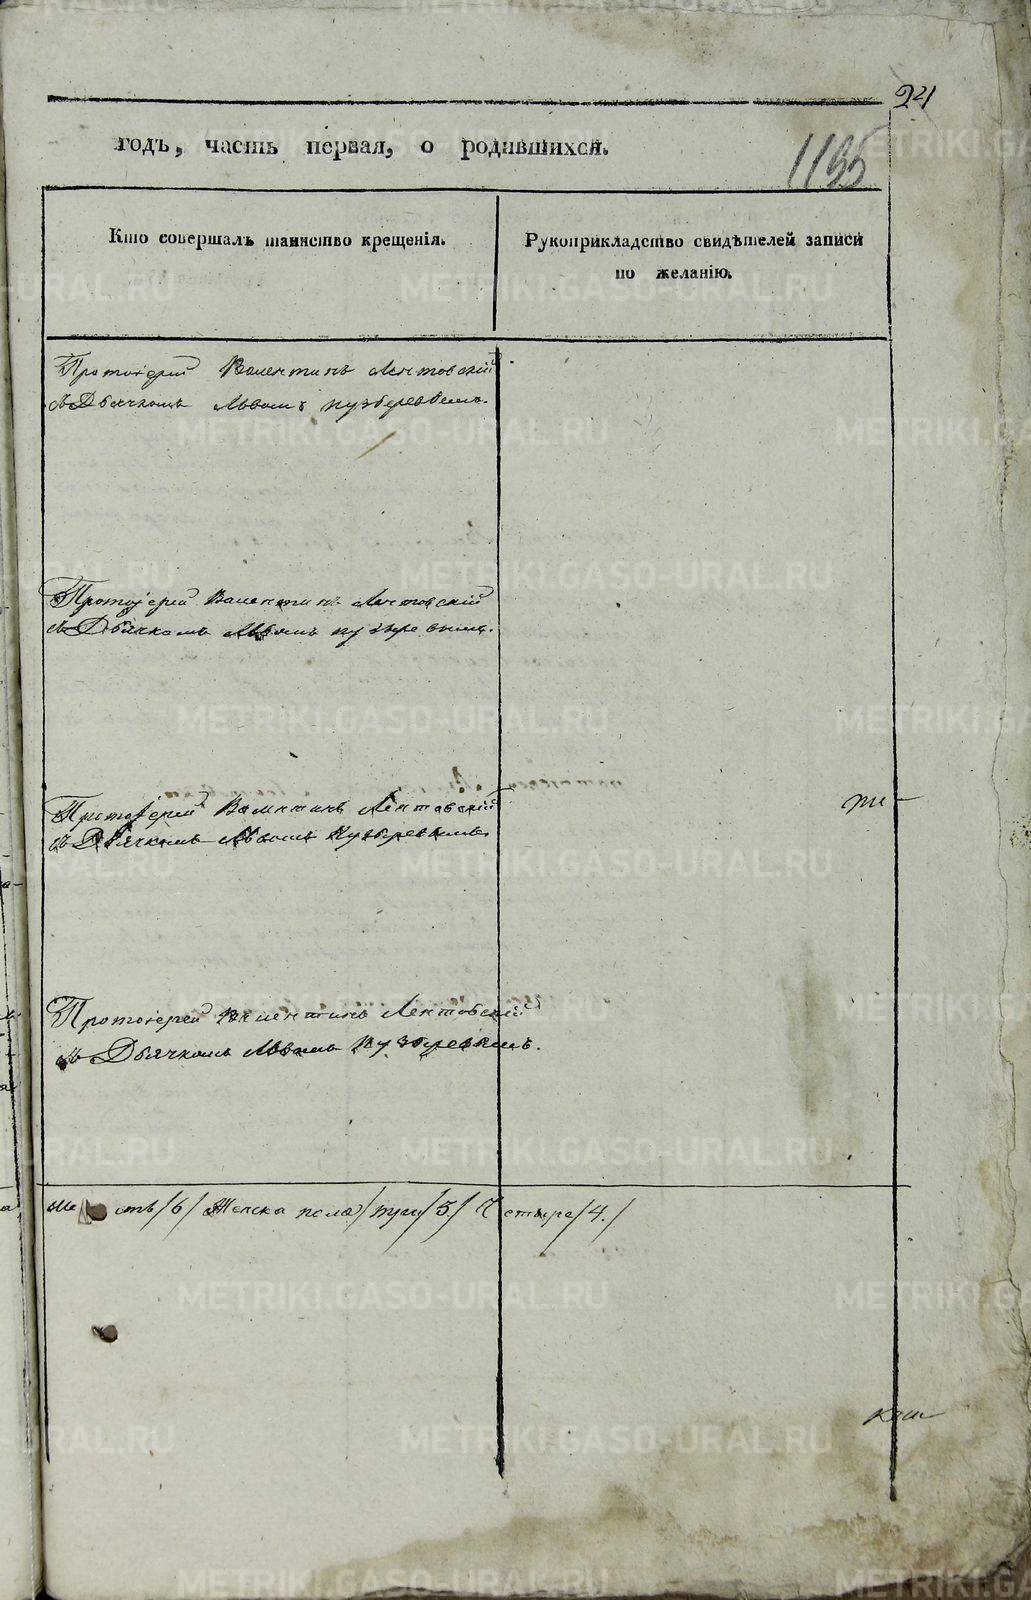 24
годъ, часть первая, о родившихся.
1195
Кто совершалъ таинство крещенія.
Рукоприкладство свидѣтелей записи
по желанію.
Протоіерей Валентинъ Лентовскій
съ Дьячкомъ Львомъ
Протоіерей Валентинъ Лентовскій
съ Дьячкомъ Львомъ
Протоіерей Валентинъ Лентовскій
съ Дьячкомъ Львомъ
Протоіерей Валентинъ Лентовскій
съ Дьячкомъ Львомъ
/6/ Женска пола /3/ Четыре /4./
METRIKI.GASO-URAL.RU